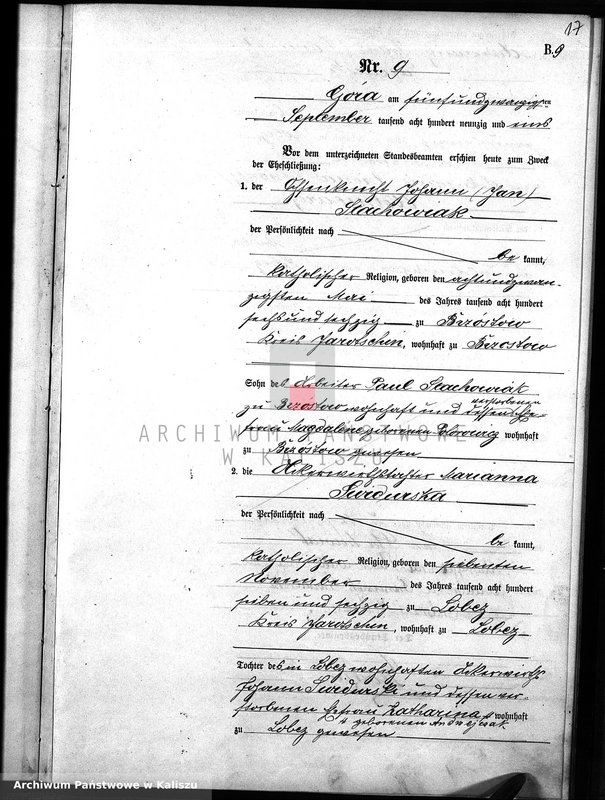 17
B. 9
Nr. 9
Góra am fünfundzwanzigsten
September tausend acht hundert neunzig und eins
Vor dem unterzeichneten Standesbeamten erschien heute zum Zweck
der Eheschließung:
1. der Ochsenknecht Johann (Jan)
Stachowiak
der Persönlichkeit nach
be kannt,
katholischer Religion, geboren den achtundzwan-
zigsten Mai des Jahres tausend acht hundert
sechsundsechzig zu Brzóstow
Kreis Jarotschin, wohnhaft zu Brzostow
Sohn des Arbeiter Paul Stachowiak
verstorbenen
zu Brzóstow wohnhaft und dessen Ehe-
frau Magdalene geborenen wohnhaft
zu Brzóstow gewesen
2. die Ackerwirthstochter Marianna
Swidurska
der Persönlichkeit nach
be kannt,
katholischer Religion, geboren den siebenten
November des Jahres tausend acht hundert
sieben und sechzig zu Lobez
Kreis Jarotschin, wohnhaft zu Lobez
Tochter des in Lobez wohnhaften Ackerwirths
Johann Swidurski und dessen ver-
storbenen Ehefrau Katharina wohnhaft
geborenen
zu Lobez gewesen
ARCHIWUM PAŃSTWOWE
W KALISZU
Archiwum Państwowe w Kaliszu